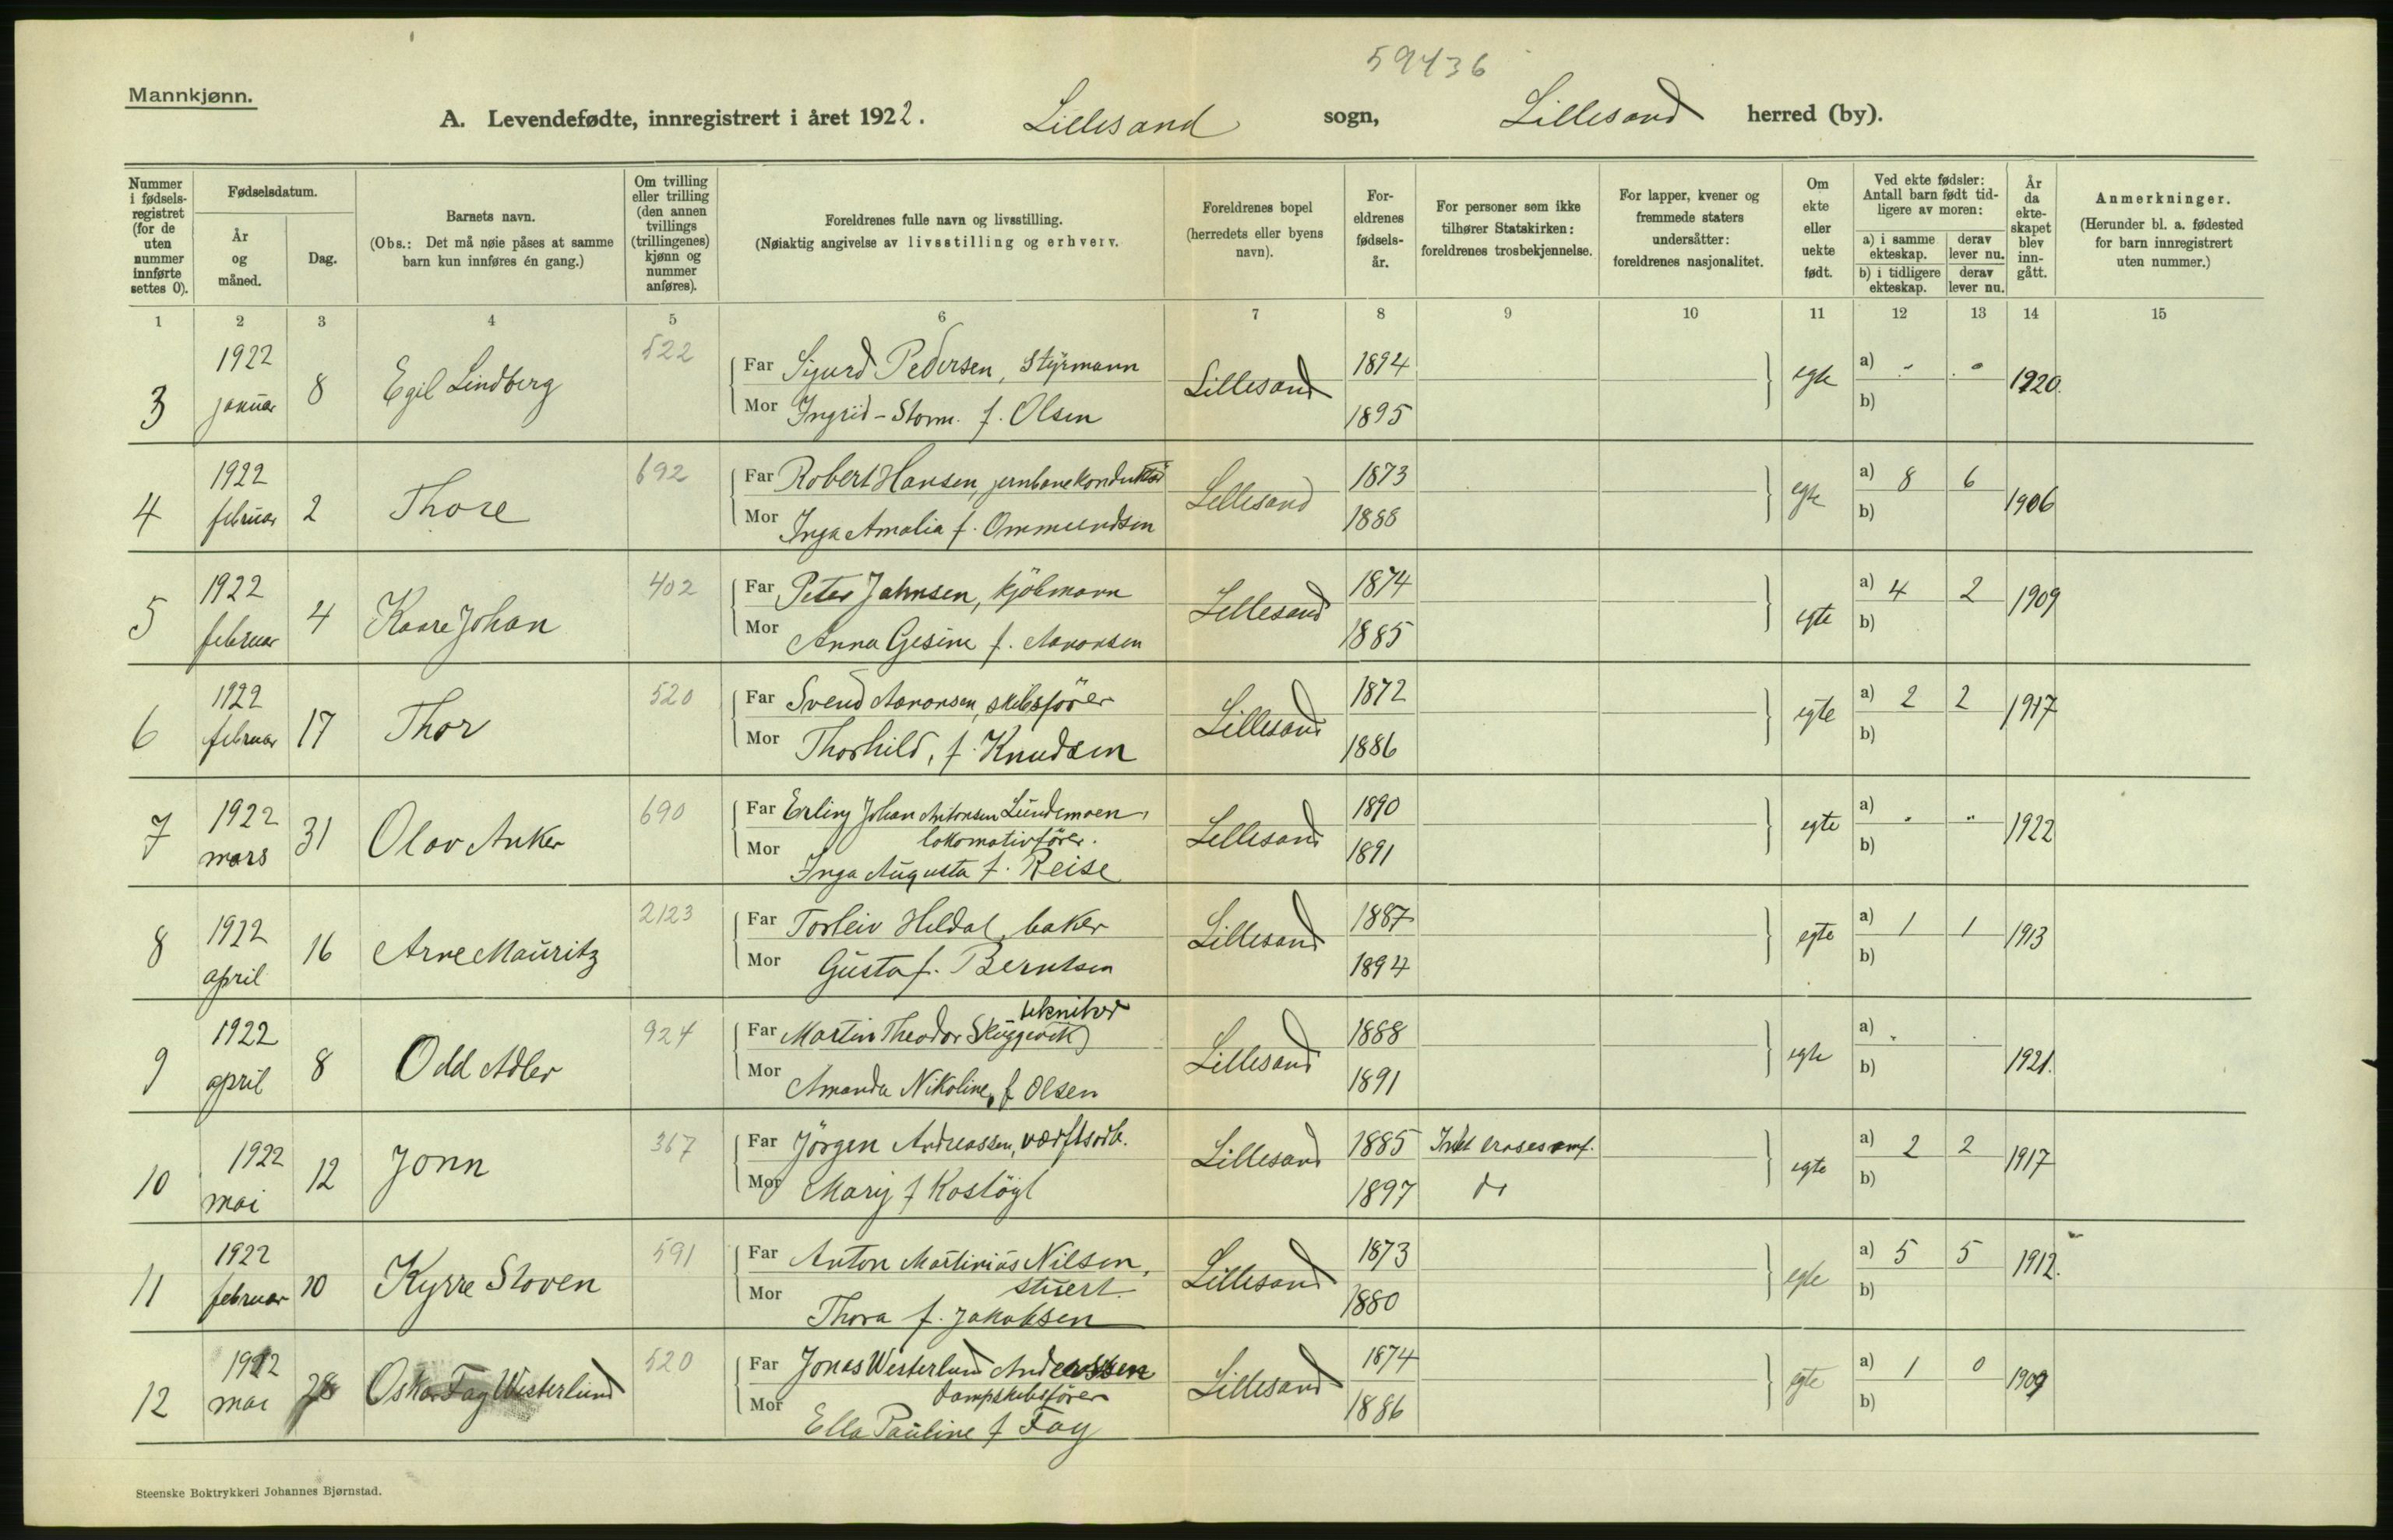 59436
Mannkjønn.
A. Levendefødte, innregistrert i året 1922. Lillesand sogn, Lillesand herred (by).
Nummer i fødselsregistret (for de uten nummer innførte settes 0).
Fødselsdatum.
År og måned.
Dag.
Barnets navn.
(Obs.: Det må nøie påses at samme barn kun innføres én gang.)
Om tvilling eller trilling (den annen tvillings (trillingenes) kjønn og nummer anføres).
Foreldrenes fulle navn og livsstilling.
(Nøiaktig angivelse av livsstilling og erhverv.
Foreldrenes bopel (herredets eller byens navn).
Foreldrenes fødselsår.
For personer som ikke tilhører Statskirken: foreldrenes trosbekjennelse.
For lapper, kvener og fremmede staters undersåtter: foreldrenes nasjonalitet.
Om ekte eller uekte født.
Ved ekte fødsler: Antall barn født tidligere av moren:
a) i samme ekteskap. derav lever nu.
b) i tidligere ekteskap. derav lever nu.
År da ekteskapet blev inngått.
Anmerkninger.
(Herunder bl. a. fødested for barn innregistrert uten nummer.)
1 2 3 4 5 6 7 8 9 10 11 12 13 14 15
3 1922 januar 8 Egil Lindberg 522 Far Sigurd Pedersen, Styrmann Lillesand 1894 egte a) " " 1920.
Mor Ingrid-Storm. f. Olsen 1895 b)
4 1922 februar 2 Thore 692 Far Robert Hansen, jernbanekonduktør Lillesand 1873 egte a) 8 6 1906
Mor Inga Amalia f. Ommundsen 1888 b)
5 1922 februar 4 Kaare Johan 402 Far Peter Jahnsen, kjöbmann Lillesand 1874 egte a) 4 2 1909
Mor Anna Gesine f. Aanonsen 1885 b)
6 1922 februar 17 Thor 520 Far Svend Aanonsen, skibsförer Lillesand 1872 egte a) 2 2 1917
Mor Thorhild, f. Knudsen 1886 b)
7 1922 mars 31 Olav Anker 690 Far Erling Johan Antonsen Lundemoen, Lillesand 1890 egte a) " " 1922
lokomotivförer.
Mor Inga Augusta f. Reise 1891 b)
8 1922 april 16 Arne Mauritz 2123 Far Torleiv Heldal, baker Lillesand 1887 egte a) 1 1 1913
Mor Gusta f. Berntsen 1894 b)
9 1922 april 8 Odd Adler 924 tekniker
Far Martin Theodor Skuggevik Lillesand 1888 egte a) " 1921.
Mor Amanda Nikoline, f Olsen 1891 b)
10 1922 mai 12 Jonn 367 Far Jörgen Andreassen, værftsarb. Lillesand 1885 egte a) 2 2 1917
Mor Mary f 1897 do b)
11 1922 februar 10 Kyrre Sloven 591 Far Anton Martinius Nilsen, Lillesand 1873 egte a) 5 5 1912.
stuert.
Mor Thora f. Jakobsen 1880 b)
12 1922 mai 28 Oskar Fay Westerlund 520 Far Jonas Westerlund Anderssen Lillesand 1874 egte a) 1 0 1909
dampskibsförer
Mor Ella Pauline f Fay 1886 b)
Steenske Boktrykkeri Johannes Bjørnstad.